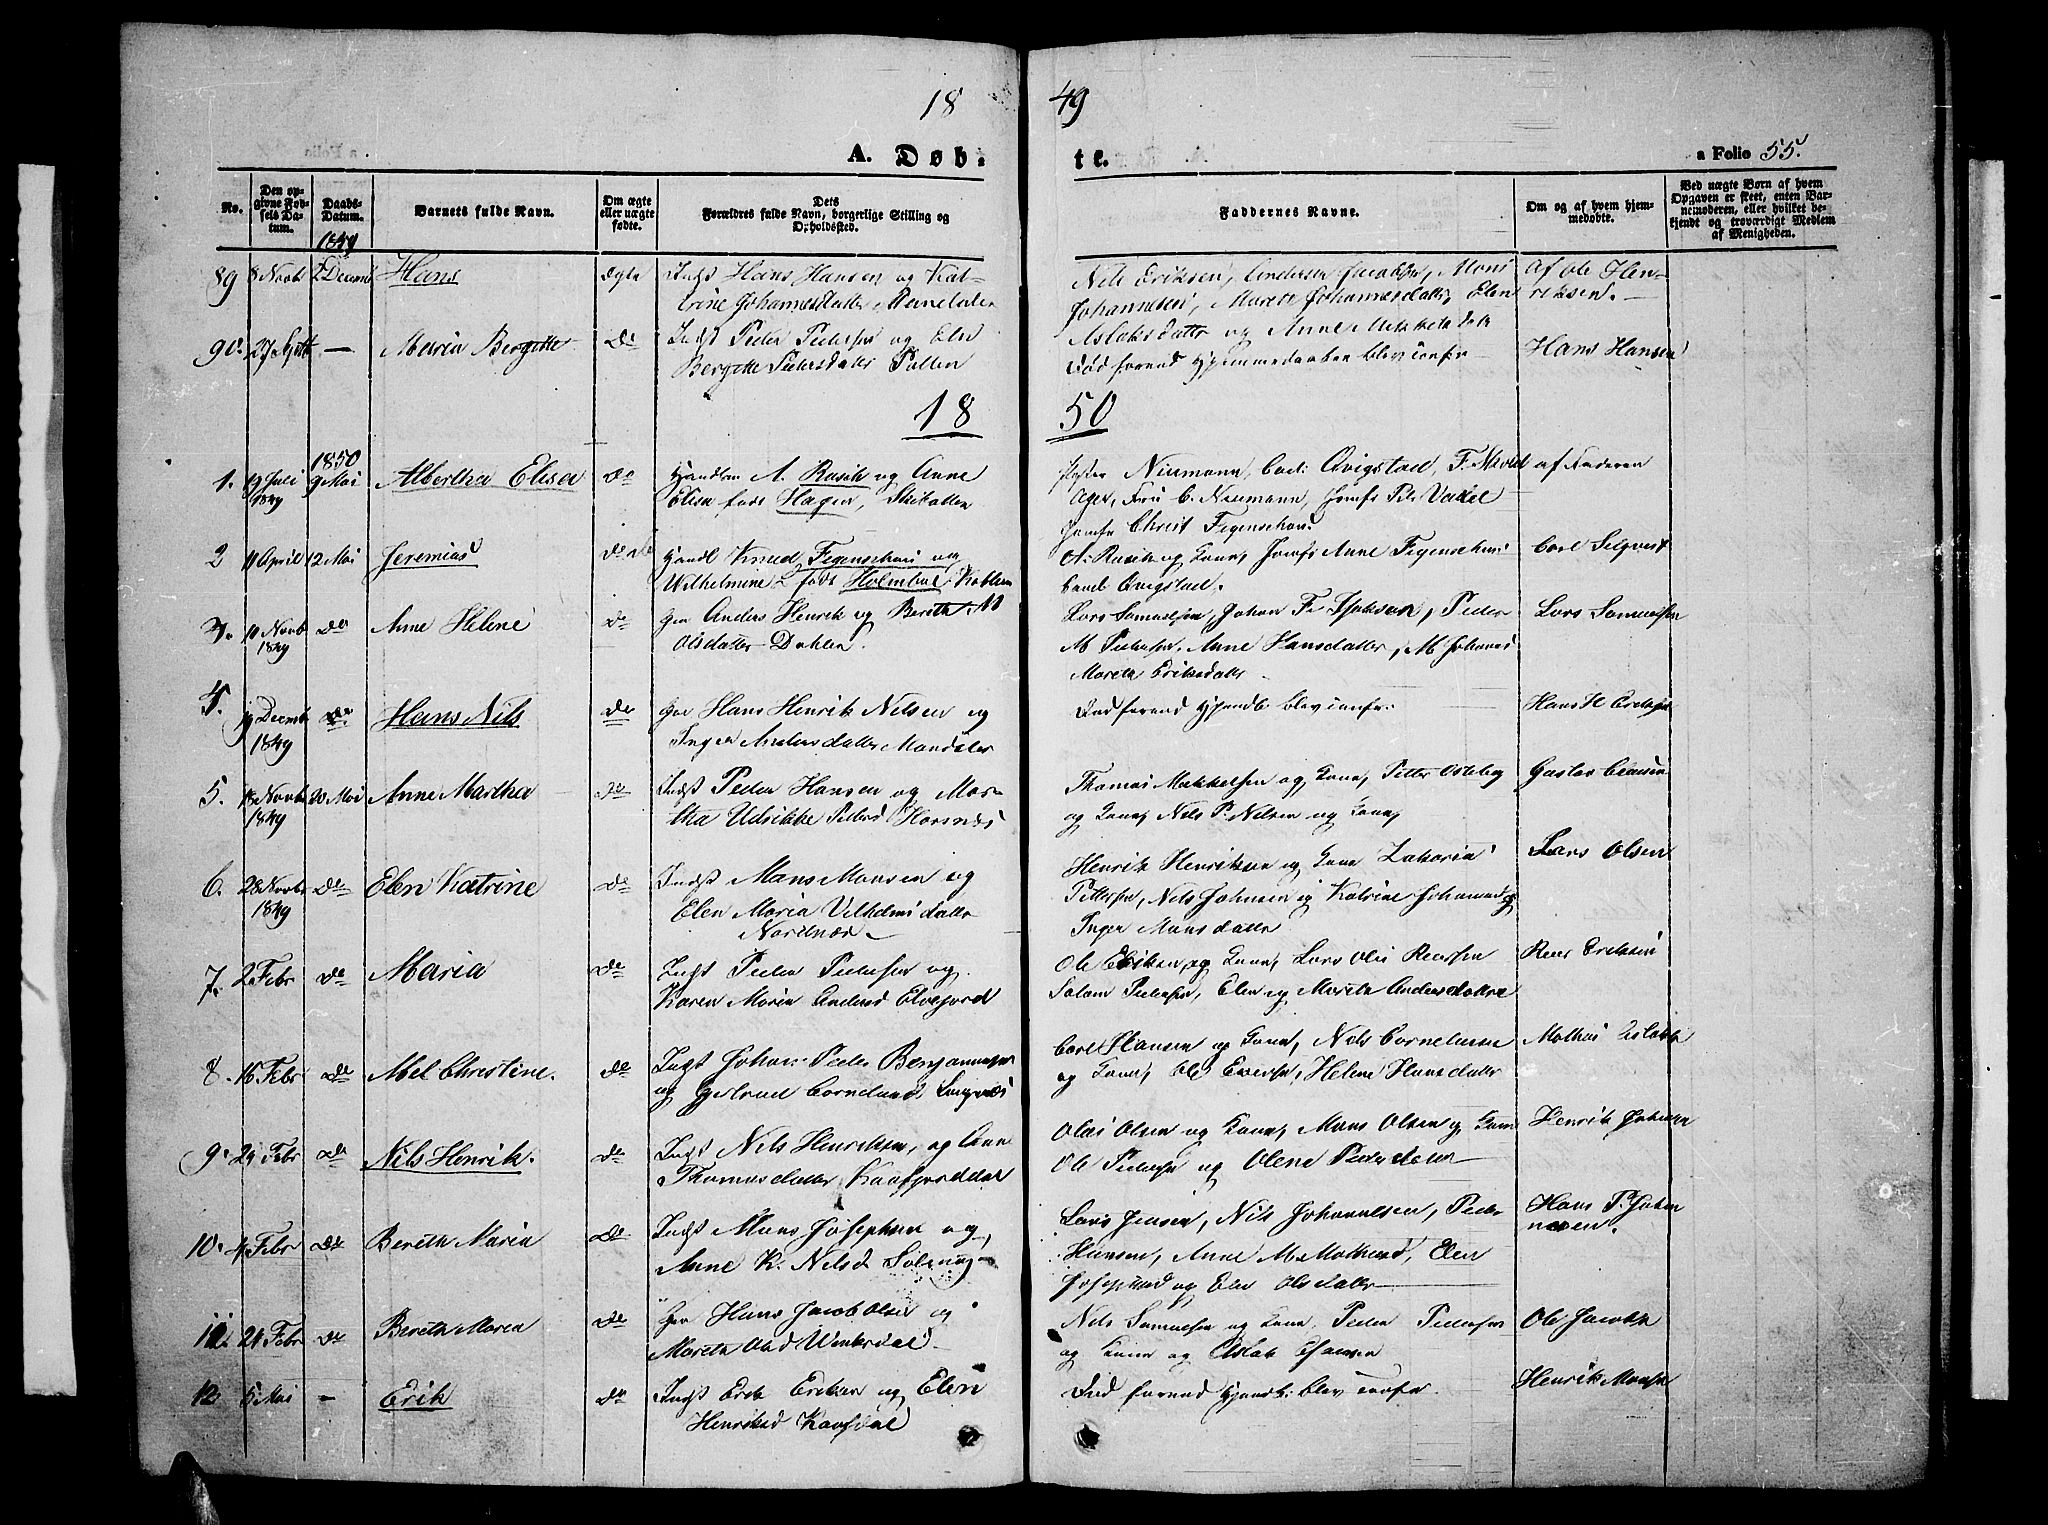 18 49
A. Døb- te.
a Folio 55.
No.
Den op-
givne Fød-
sels Da-
tum.
Daabs-
Datum.
Barnets fulde Navn.
Om ægte
eller uægte
fødte.
Dets
Forældres fulde Navn, borgerlige Stilling og
Opholdssted.
Faddernes Navne.
Om og af hvem hjem-
medøbte.
Ved uægte Børn af hvem
Opgaven er skeet, enten Bar-
nemoderen, eller hvilket be-
kjendt og troværdigt Medlem
af Menigheden.
1849
89 8 Novb 2 Decemb Hans ægte Indst Hans Hansen og Kat-
rine Johannesdatter
Nils Eriksen, Andersen Jacobsen, Mons
Johannesen, Marett Johannesdatter, Elen
Aslaksdatter og Anne Mikkelsdatr
Af Ole Hen-
riksen.
90. 27 — Maria Bergitte Do Indst Peder Pedersen og Elen
Bergitte Pedersdatter Pollen
Død forend Hjemmedaaben blev confir
Hans Hansen
18 50
1850
1. 19 Juli 9 Mai Albertha Elisa do Handlm A. Rasch og Anne
1849
Elisa født Hagen, Skibotten
Neumann, Carl Qvigstad, F. Hvid
Ager, Fru C. Neumann, Jomfr Vadel
Jomfr Christ Figenschou
af Faderen
2 11 April 12 Mai Jeremias do Handl Knud Figenschou og
Wilhelmine født Holmboe
A. Rasch og Kone, Jomfr Anne Figenschou
Carl Qvigstad.
Carl Selqvist
3. 11 Novb do Anne Helene do Gm Anders Henrik og Bereth M
1849
Olsdatter Dahlen.
Lars Samuelsen, Johan F. Isaksen, Peder
M Pedersen, Anne Hansdatter, M Johans
Mareth Eriksdatter
Lars Samuelsen
4. 19 Decemb do Hans Nils do Gm Hans Henrik Nilsen og
1849
Inger Andersdatter Mandalen
Død forend Hjemdb: blev confir:
Hans H Eriksen
5. 18 Novb 20 Mai Anne Martha do Indst Peder Hansen og Mar-
1849
tha Ulrikke Peders Horsnes
Thomas Mikkelsen og Kone, Petter Osteby
og Kone, Nils P. Nilsen og Kone,
Gustav Clausen
6. 28 Novb do Elen Katrine do Indst Mans Monsen og
1849
Elen Maria Vilhelmsdatter
Nordnæs
Henrik Henriksen og Kone Zakarias
Pettersen, Nils Johnsen og Katrine Johannesd
Inger Monsdatter
Lars Olsen
7. 2 Febr do Maria do Indst Peder Pedersen og
Karen Maria Andersd Elvejord
Ole Eriksen og Kone, Lars Olis Reiersen
Salam Pedersen, Elen og Mareth Andersdattre
Reier Eriksen
8. 16 Febr do Abel Christine. do Indst Johan Peder Benjaminsen
og Gjertrud Cornelius Lyngnes
Carl Hansen og Kone, Nils Corneliusen
og Kone, Ole Eversen, Helene Hansdatter
Mathis Aslaksen
9. 24 Febr do Nils Henrik. do Indst Nils Henriksen, og Anne
Thomasdatter Kaafjorddal
Olai Olsen og Kone, Mons Olsen og Kone
Ole Pedersen og Olene Pedersdatter
Henrik Johnsen
10. 4 Febr do Bereth Maria do Indst Mans Josephsen og
Anne K. Nilsd Solvaag
Lars Jensen, Nils Johannesen, Peder
Hansen, Anne M. Mathisd, Elen
Josephsd og Elen Olsdatter
Hans P. Johan
nesen.
11. 24 Febr do Bereth Maria do Gm Hans Jacob Olsen og
Mareth Olsd Winterdal
Nils Samuelsen og Kone, Peder Pedersen
og Kone og Aslak Hansen
Ole Jacobsen
12 5 Mai — Erik do Indst Erik Eriksen og Elen
Henriksd Kaafdal
Død forend Hjemdb: blev confir.
Henrik Monsen